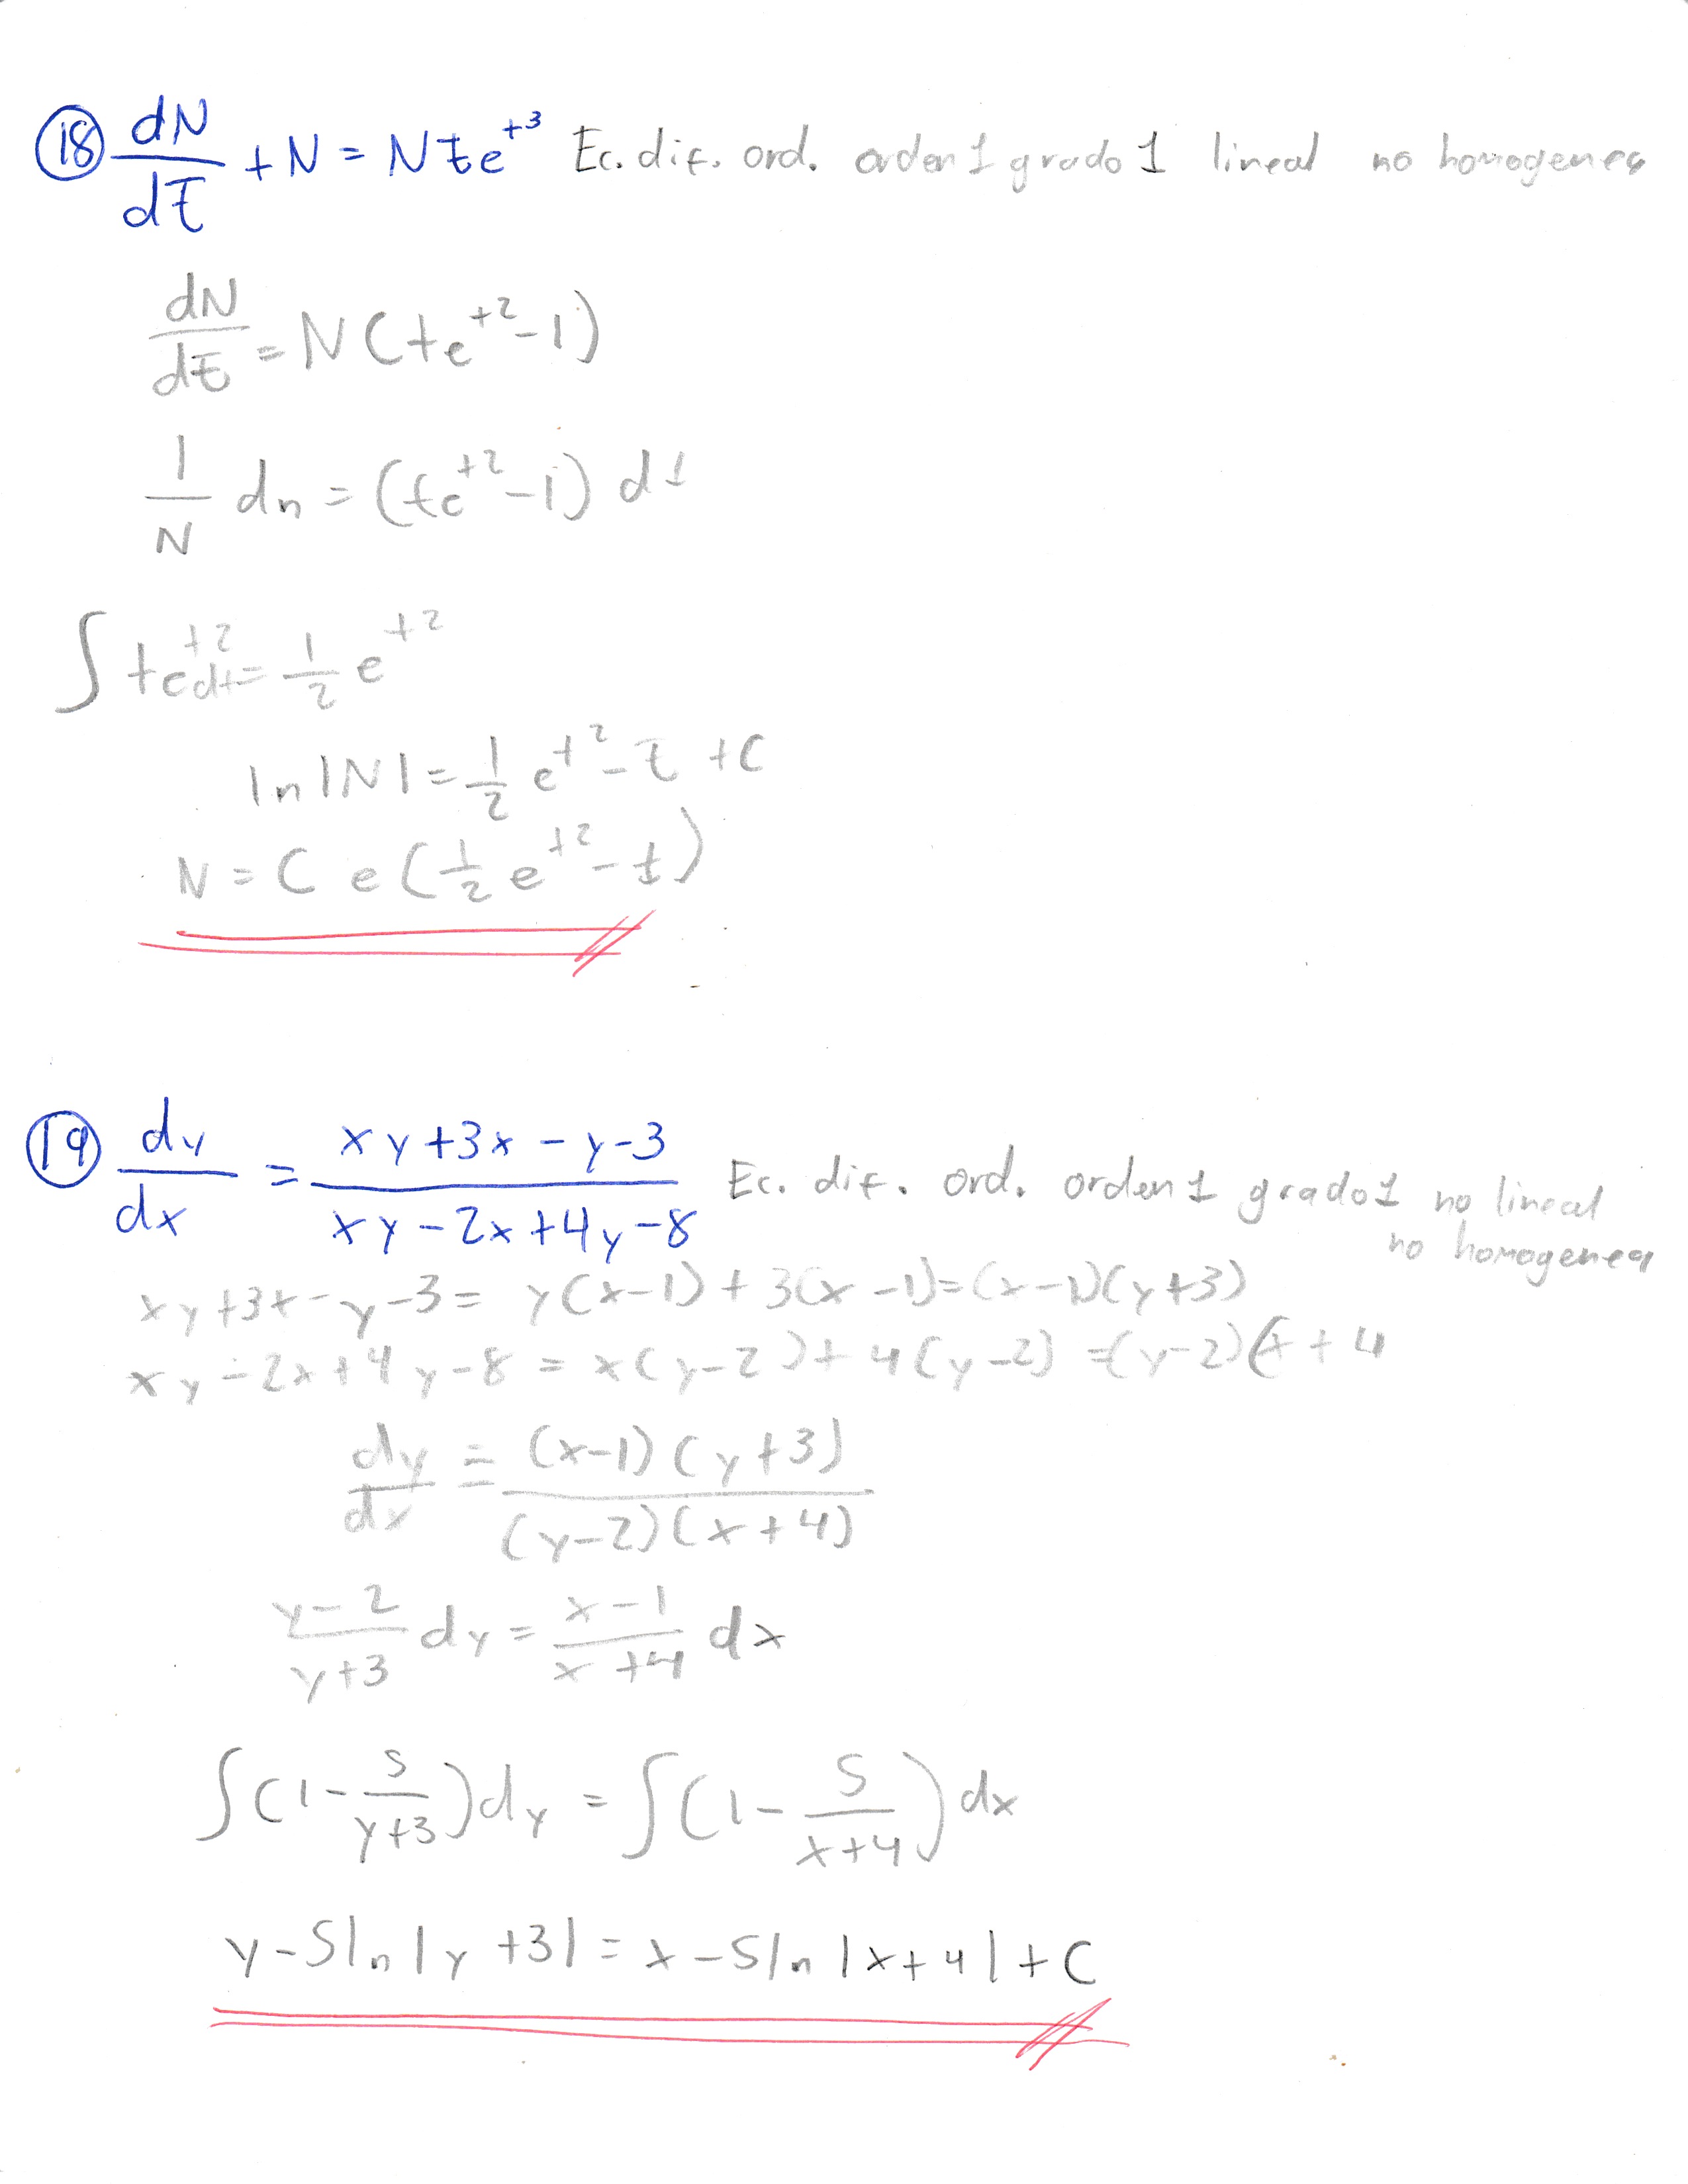 ⑱ dN/dt + N = Nte^{t^3} Ec. dif. ord. orden 1 grado 1 lineal no homogenea
dN/dt = N(te^{t^2}-1)
1/N dn = (te^{t^2}-1) dt
∫te^{t^2}dt = 1/2 e^{t^2}
ln|N| = 1/2 e^{t^2} - t + C
N = C e(1/2 e^{t^2} - t)
⑲ dy/dx = (xy+3x-y-3)/(xy-2x+4y-8) Ec. dif. ord. orden 1 grado 1 no lineal
no homogenea
xy+3x-y-3 = y(x-1)+3(x-1)=(x-1)(y+3)
xy-2x+4y-8 = x(y-2)+4(y-2)=(y-2)(x+4
dy/dx = (x-1)(y+3)/(y-2)(x+4)
y-2/y+3 dy = x-1/x+4 dx
∫(1-5/y+3)dy = ∫(1-5/x+4)dx
y-5ln|y+3| = x-5ln|x+4|+C